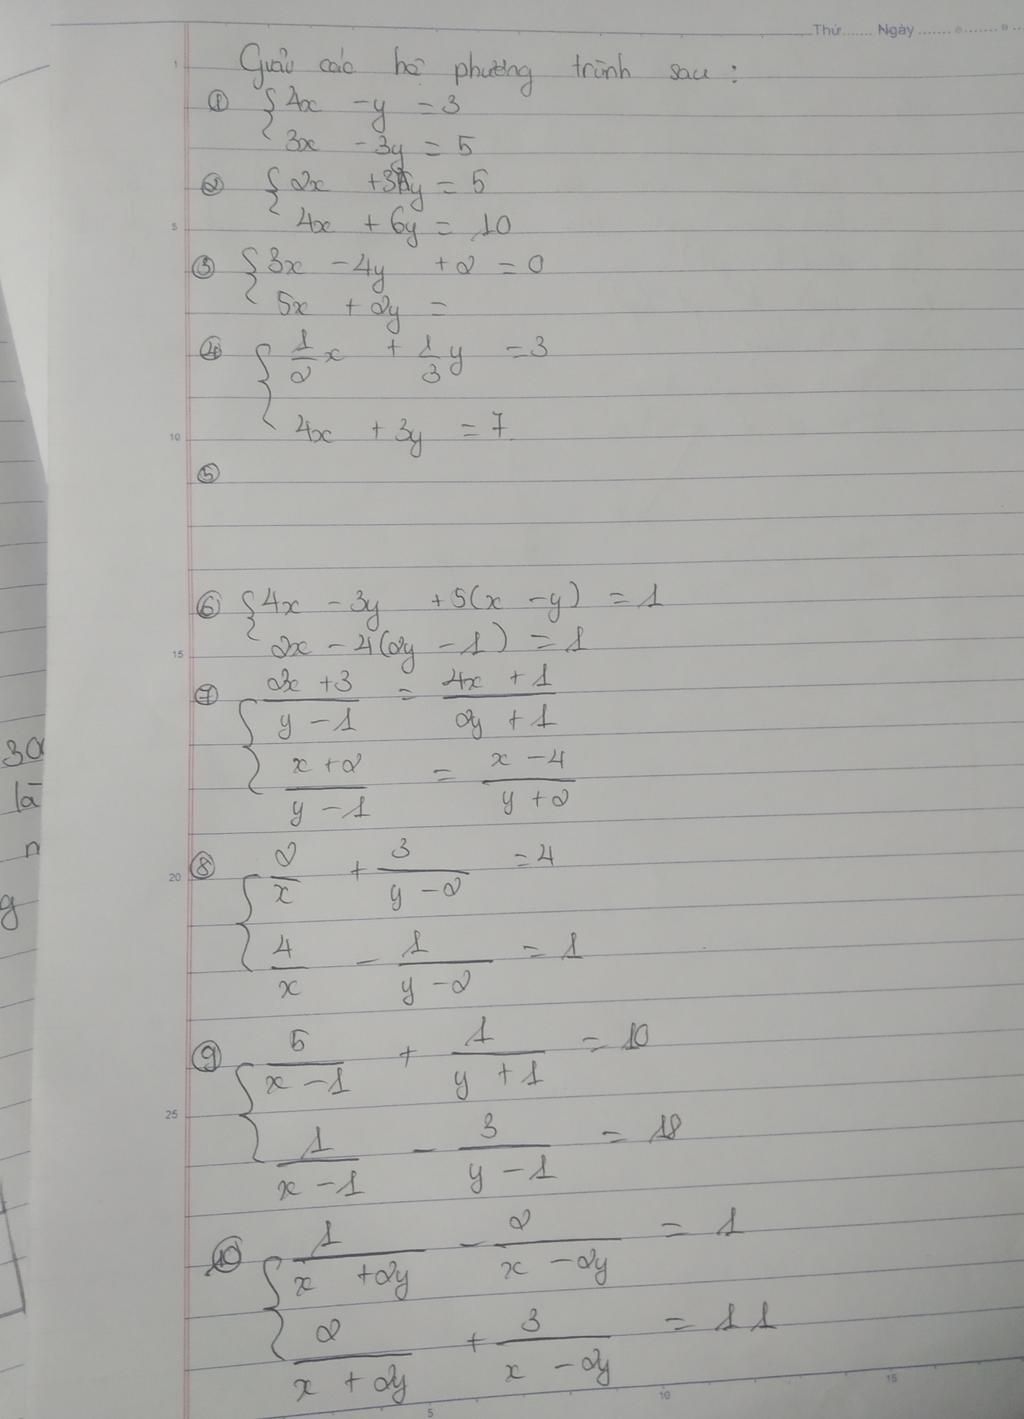 Thứ ...... Ngày
Giải các hệ phương trình sau :
① { 4x - y = 3
3x - 3y = 5
② { 2x + 3y = 5
4x + 6y = 10
③ { 3x - 4y + 2 = 0
5x + 2y =
④ { 1/2 x + 1/3 y = 3
4x + 3y = 7
⑤
⑥ { 4x - 3y + 5(x - y) = 1
2x - 4(2y - 1) = 1
⑦ { (2x + 3)/(y - 1) = (4x + 1)/(2y + 1)
(x + 2)/(y - 1) = (x - 4)/(y + 2)
⑧ { 2/x + 3/(y - 2) = 4
4/x - 1/(y - 2) = 1
⑨ { 5/(x - 1) + 1/(y + 1) = 10
1/(x - 1) - 3/(y - 1) = 18
⑩ { 1/(x + 2y) - 2/(x - 2y) = 1
2/(x + 2y) + 3/(x - 2y) = 11
1
5
10
15
20
25
5
10
15
30
là
n
g